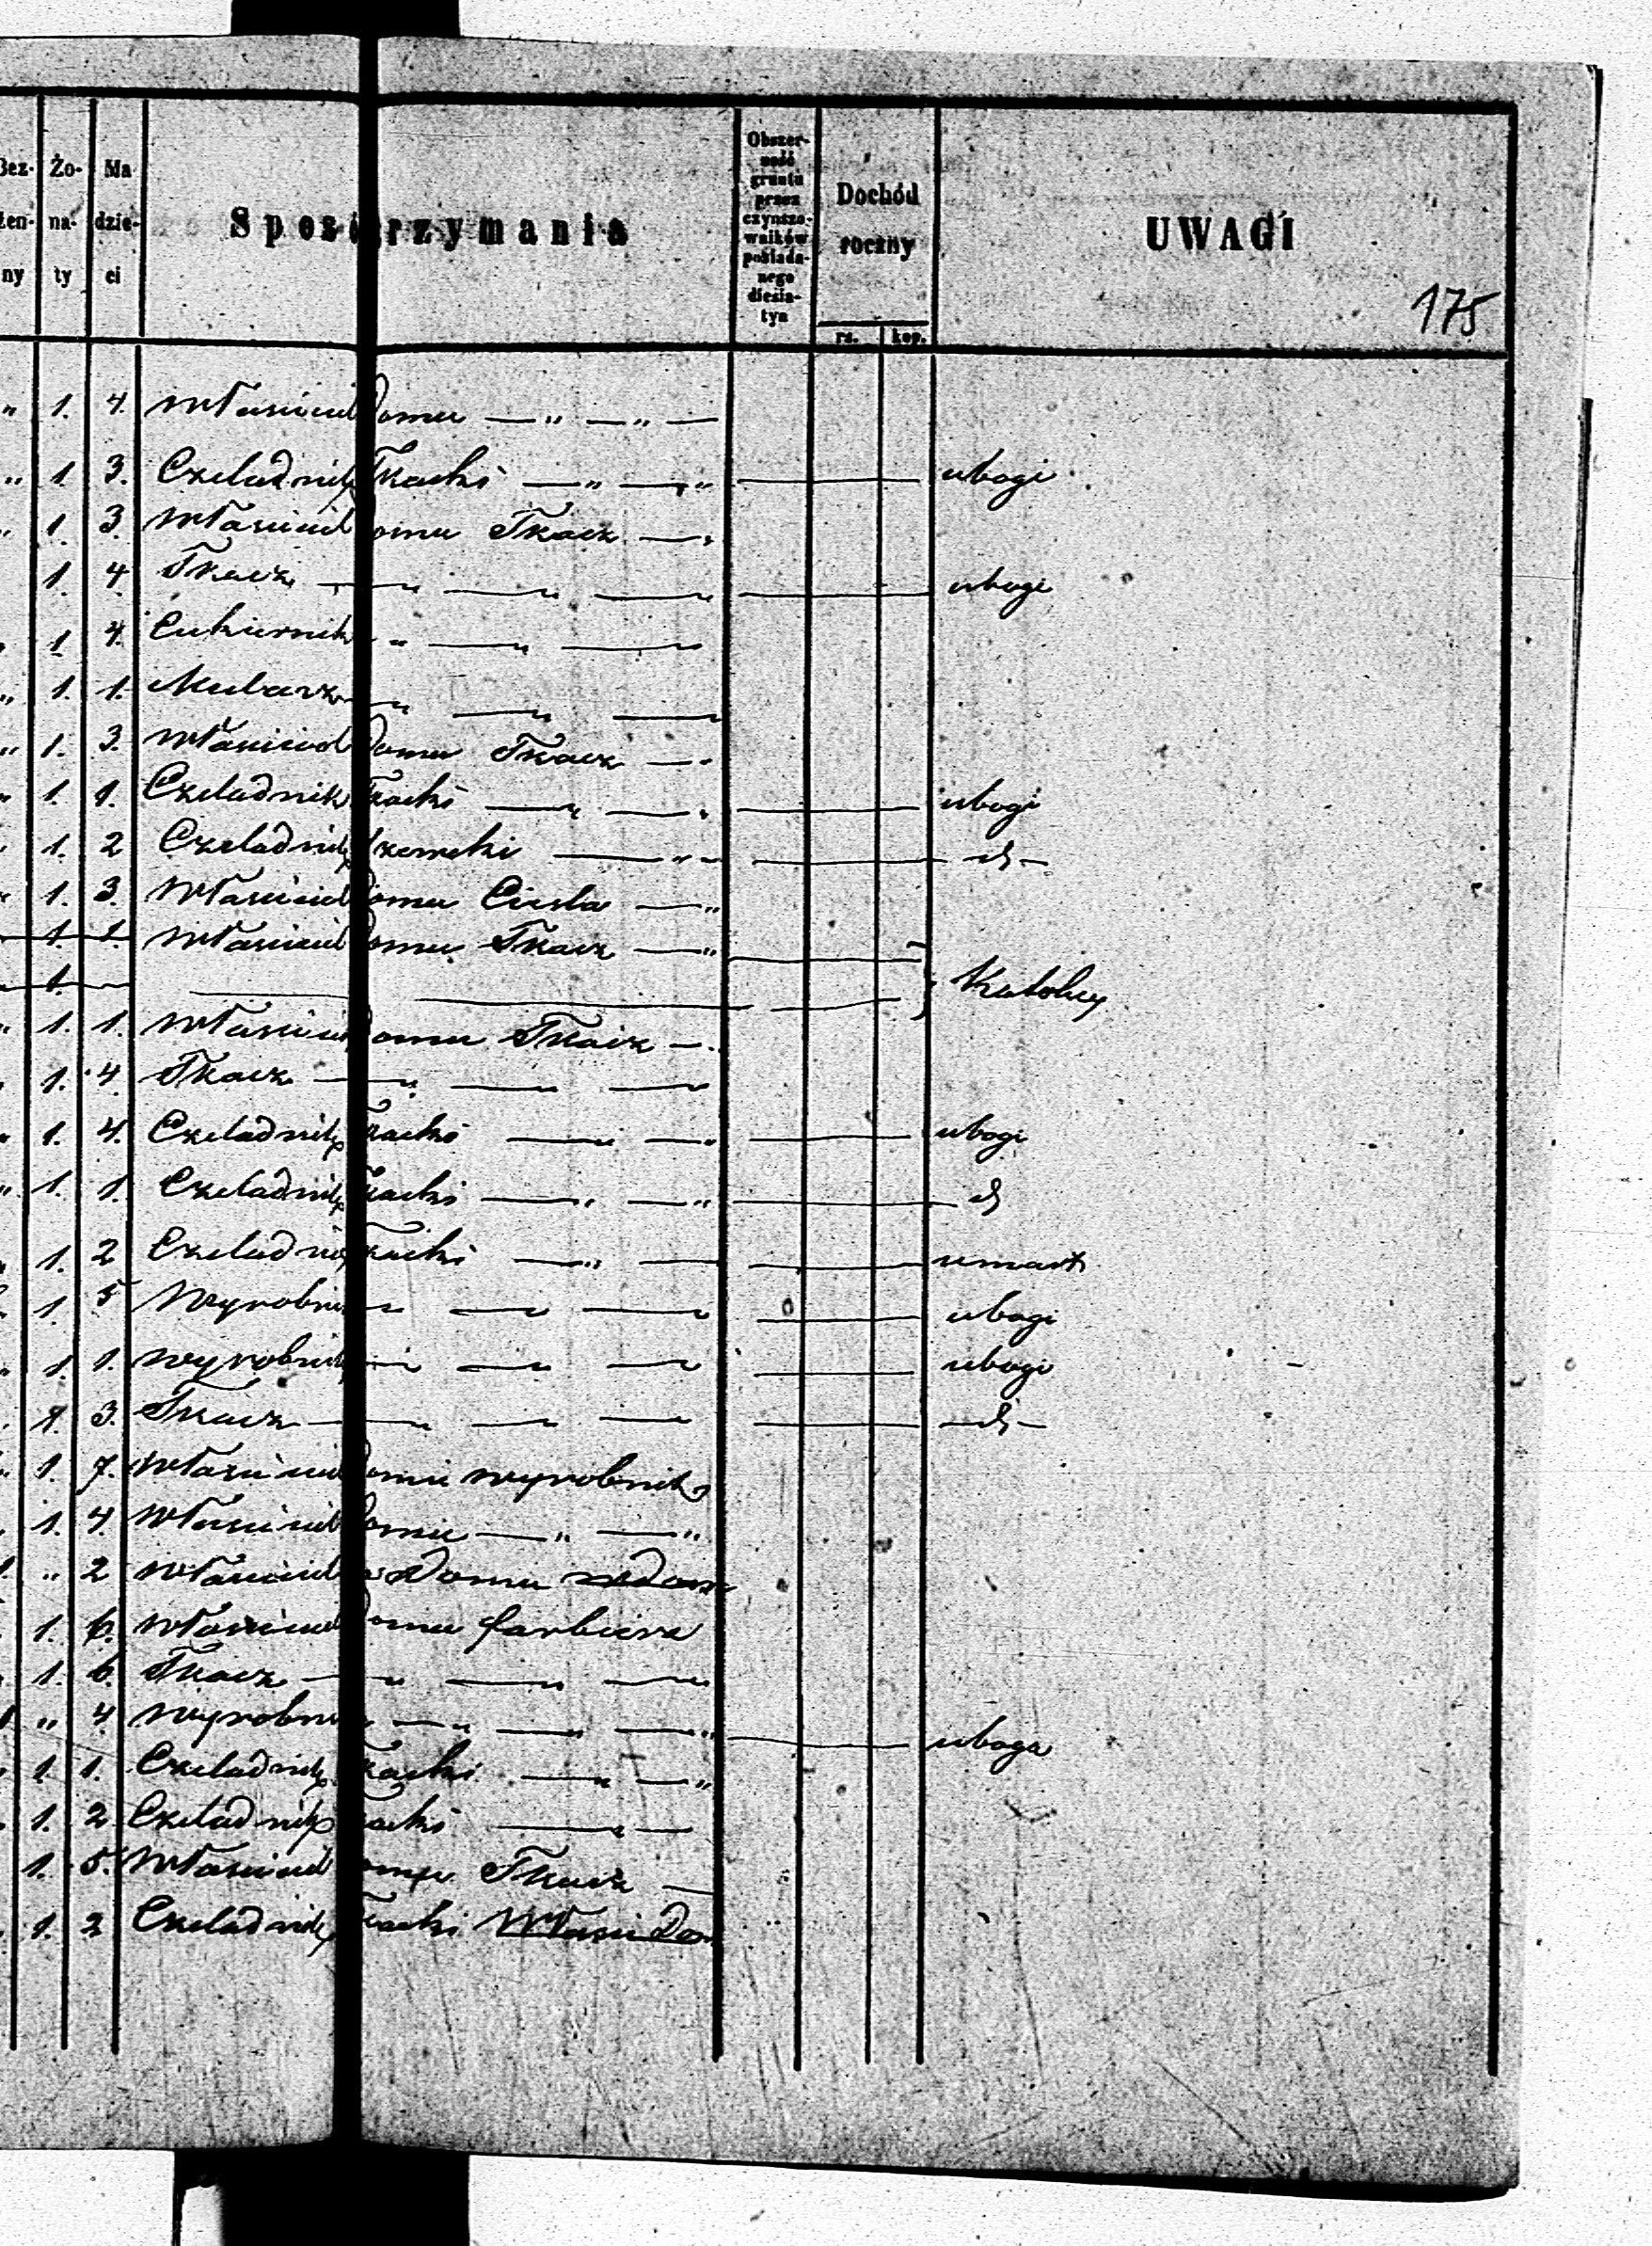 Bez- Żo- Ma
żen- na- dzie-
ny ty ci
Sposó rzymania
Obszer-
ność
gruntu
przez
czynszo-
wników
posiada-
nego
diesia-
tyn
Dochód
roczny
rs. kop.
UWAGI
175
„ 1. 4. Właściciel Domu — „ — „ —
„ 1 3. Czeladnik Tkacki — „ — „ ubogi
„ 1. 3. Właściciel omu Tkacz —
1. 4 Tkacz — ubogi
1 4. Cukiernik „
„ 1. 1. Mularz
„ 1. 3. Właściciel Domu Tkacz —
„ 1. 1. Czeladnik Tkacki — ubogi
1. 2 Czeladnik szewcki — „ — d —
1. 3. Właściciel Domu Ciesla — „
1. 1. Właściciel Domu Tkacz — „
1. Katolicy
„ 1. 1. Właściciel omu Tkacz —
1. 4 Tkacz —
„ 1. 4. Czeladnik Tkacki — „ ubogi
„ 1. 1. Czeladnik Tkacki — „ d
1. 2 Czeladnik Tkacki — „ umarł
1 5 Wyrobnik — ubogi
1. 1. wyrobnik — ubogi
1. 3. Tkacz — — d —
1. 7. Właściciel omu wyrobnik
1. 4. Właściciel Domu — „ — „
1 „ 2 Właściciel Domu
1. 6. Właściciel Domu farbierz
1. 6. Tkacz —
1 „ 4 Wyrobni — „ uboga
1. 1. Czeladnik Tkacki — „
1. 2 Czeladnik Tkacki —
1. 5. Właściciel omu Tkacz —
1. 2 Czeladnik Tkacki Właści Dom